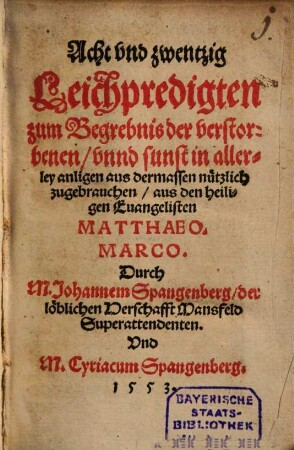 j.
Acht vnd zwentzig
Leichpredigten
zum Begrebnis der verstor-
benen / vnnd sunst in aller-
ley anligen aus dermassen nützlich
zugebrauchen / aus den heili-
gen Euangelisten
MATTHAEO.
MARCO.
Durch
M. Johannem Spangenberg / der
löblichen Herschafft Mansfeld
Superattendenten.
Vnd
M. Cyriacum Spangenberg.
1553.
BAYERISCHE
STAATS-
BIBLIOTHEK